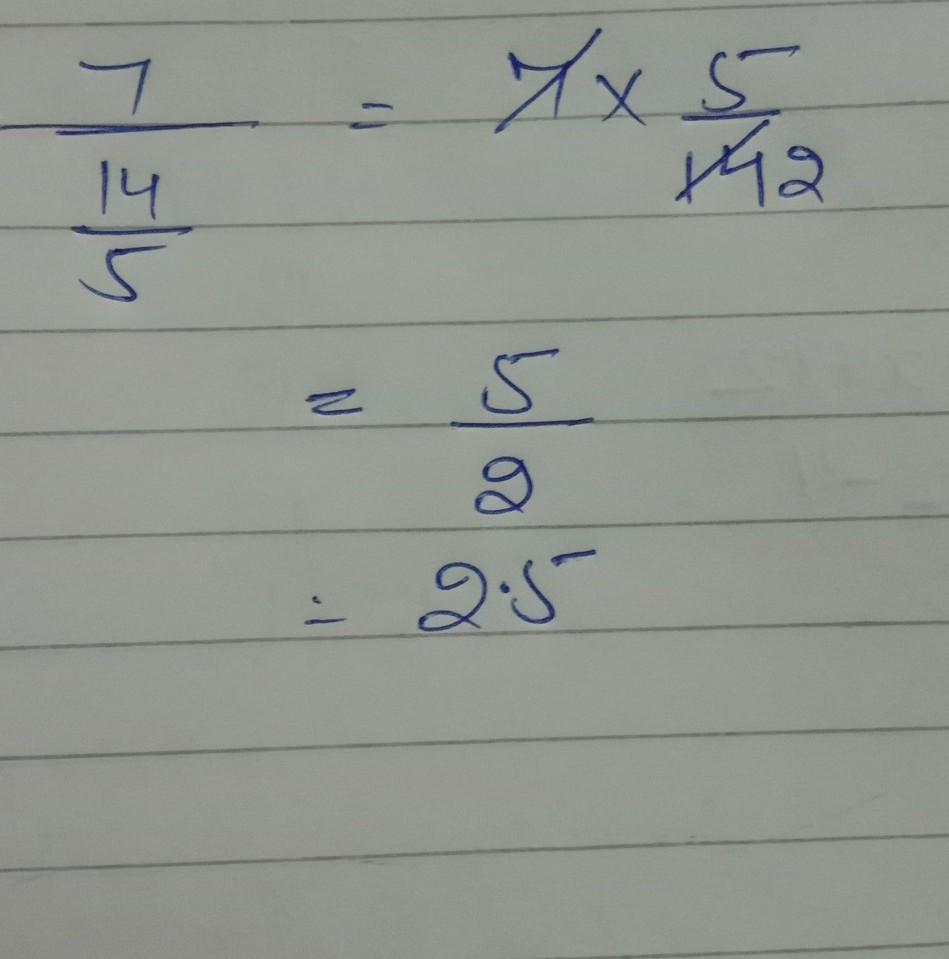 7 / (14/5) = 7 × 5/14 2
= 5/2
= 2.5